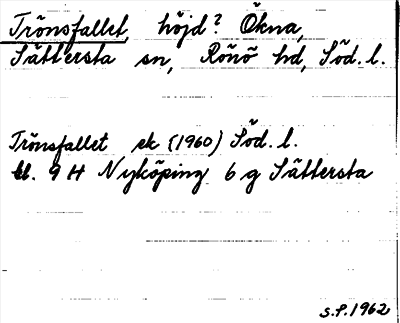 Trönsfallet, höjd? Ökna,
Sättersta sn, Rönö hd, Söd. l.
Trönsfallet ek (1960) Söd. l.
bl. 9 H Nyköping 6 g Sättersta
S.P. 1962